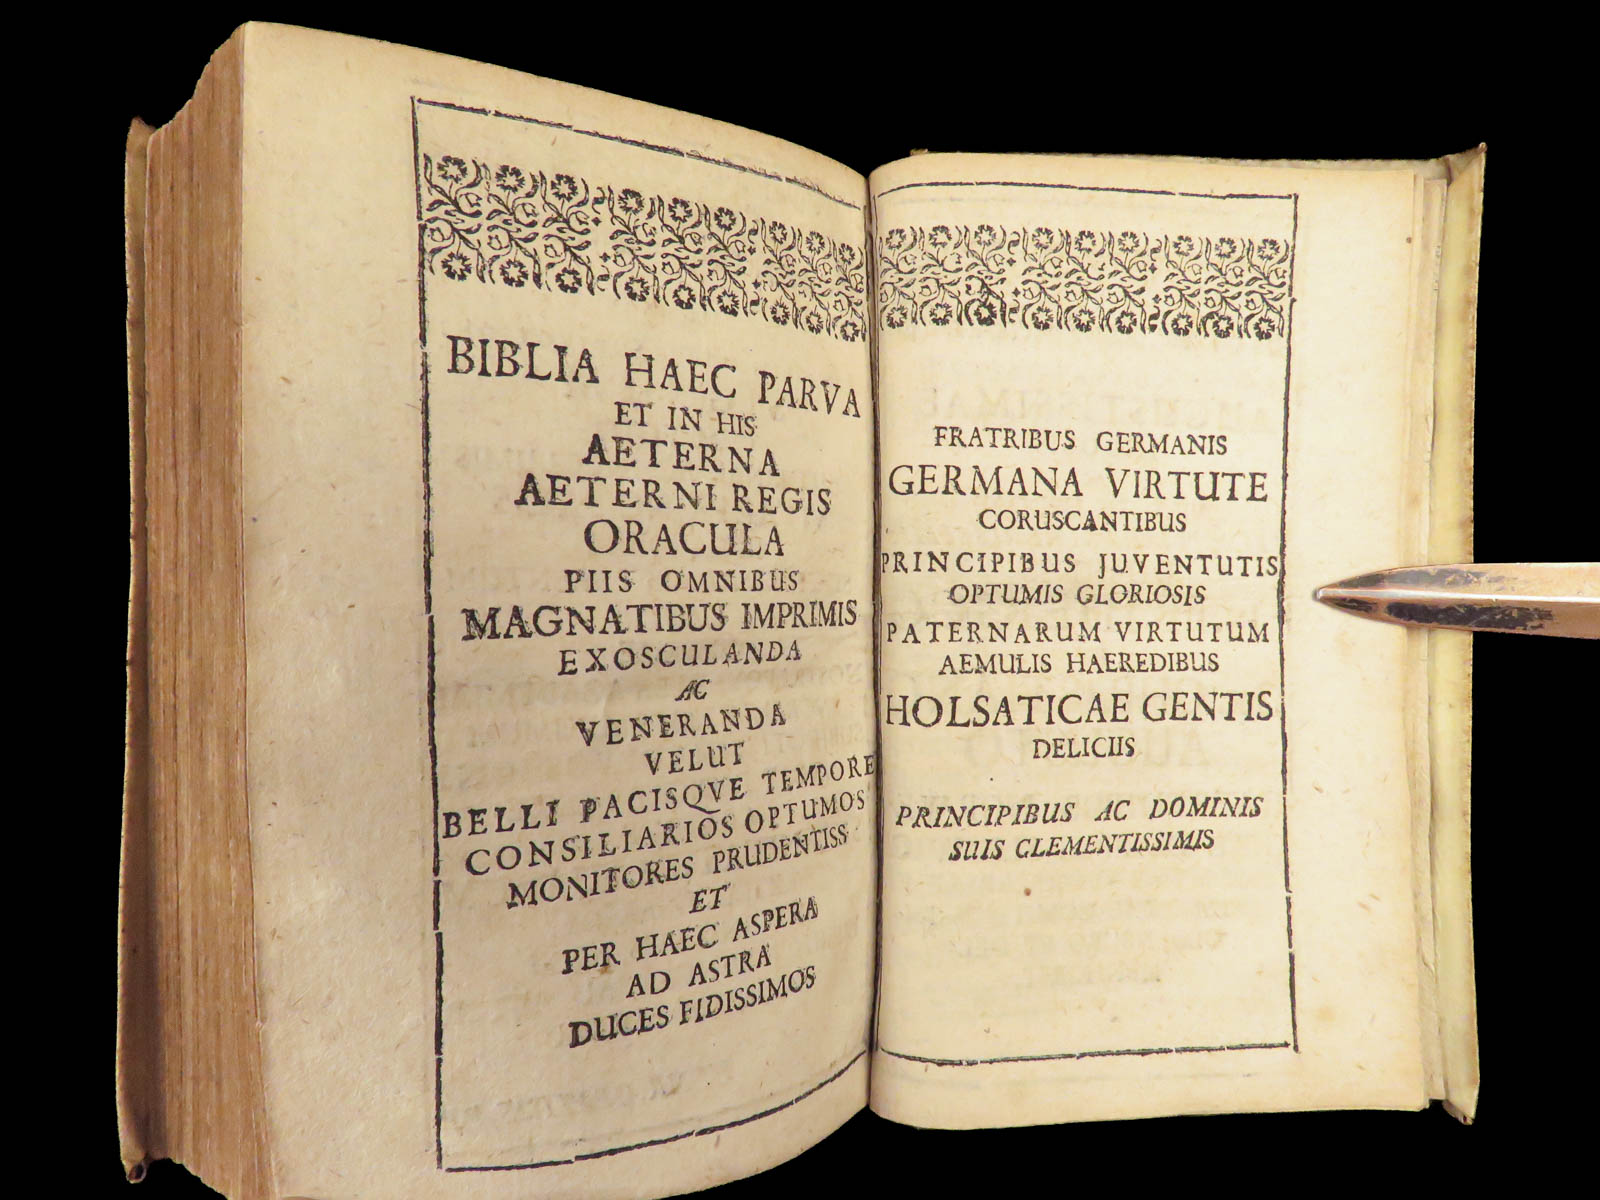 BIBLIA HAEC PARVA
ET IN HIS
AETERNA
AETERNI REGIS
ORACULA
PIIS OMNIBUS
MAGNATIBUS IMPRIMIS
EXOSCULANDA
AC
VENERANDA
VELUT
BELLI PACISQVE TEMPORE
CONSILIARIOS OPTUMOS
MONITORES PRUDENTISS
ET
PER HAEC ASPERA
AD ASTRA
DUCES FIDISSIMOS
FRATRIBUS GERMANIS
GERMANA VIRTUTE
CORUSCANTIBUS
PRINCIPIBUS JUVENTUTIS
OPTUMIS GLORIOSIS
PATERNARUM VIRTUTUM
AEMULIS HAEREDIBUS
HOLSATICAE GENTIS
DELICIIS
PRINCIPIBUS AC DOMINIS
SUIS CLEMENTISSIMIS